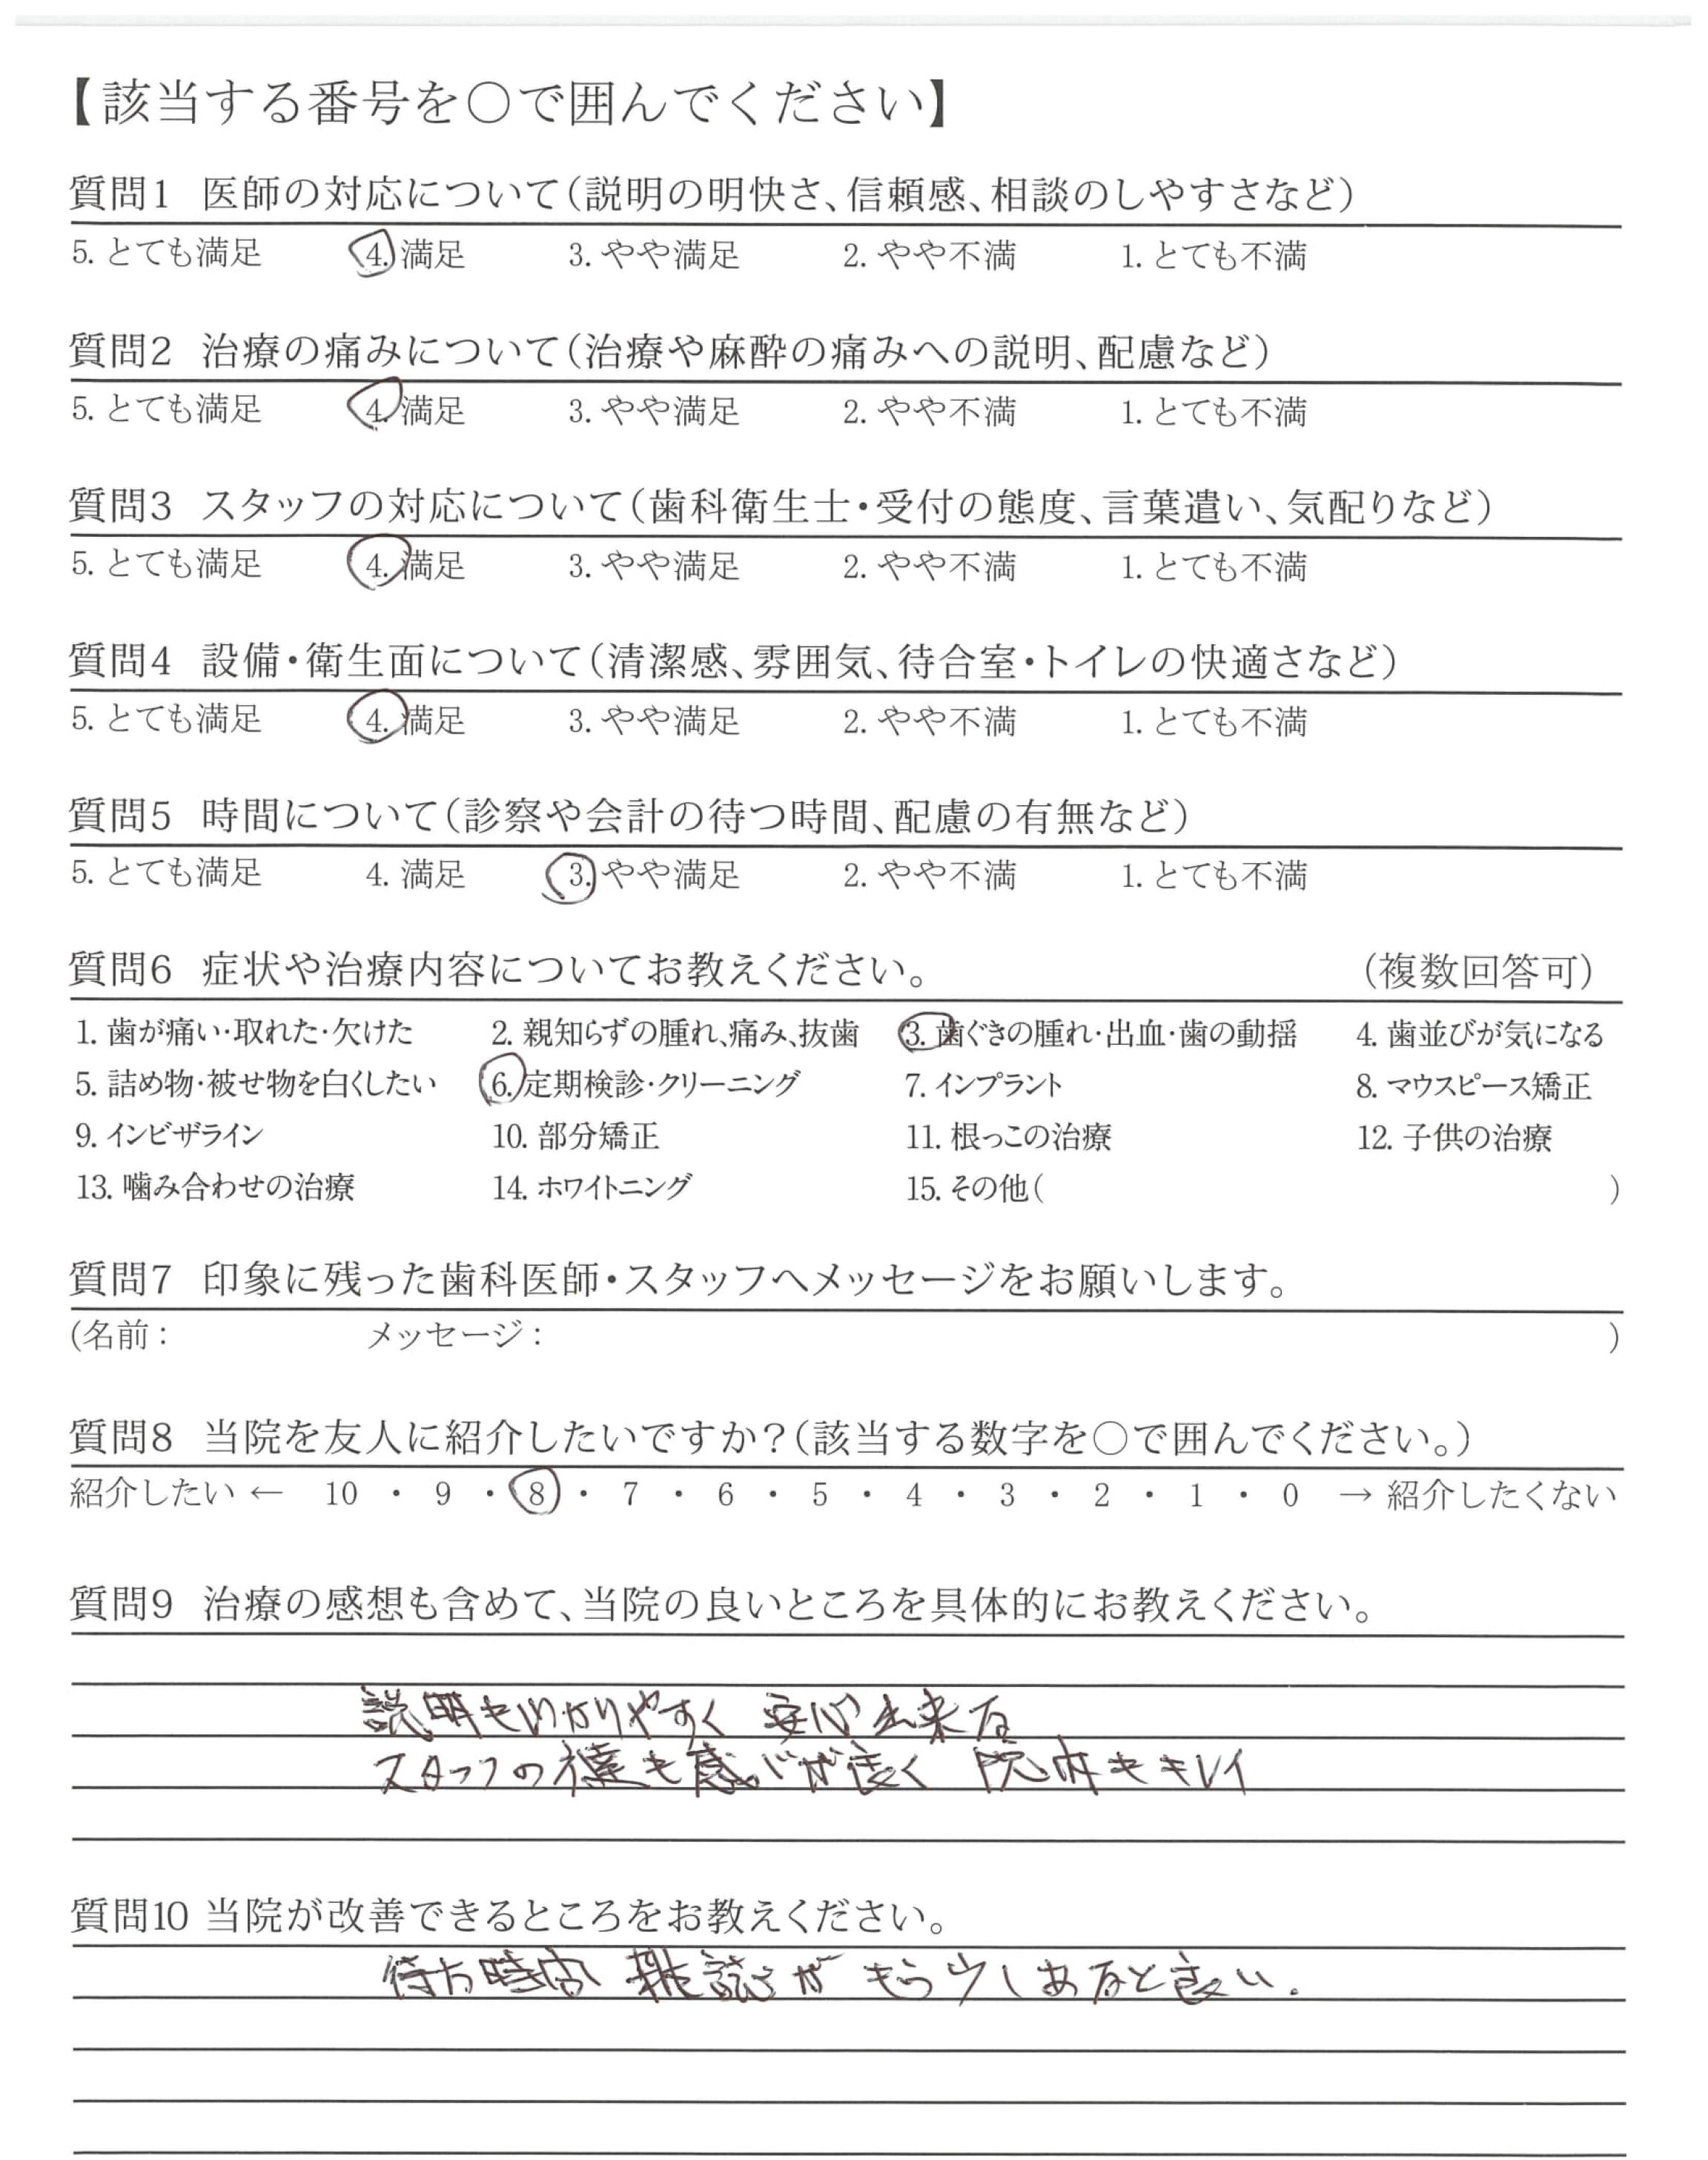 【該当する番号を○で囲んでください】
質問1 医師の対応について(説明の明快さ、信頼感、相談のしやすさなど)
5. とても満足 4. 満足 3. やや満足 2. やや不満 1. とても不満
質問2 治療の痛みについて(治療や麻酔の痛みへの説明、配慮など)
5. とても満足 4. 満足 3. やや満足 2. やや不満 1. とても不満
質問3 スタッフの対応について(歯科衛生士・受付の態度、言葉遣い、気配りなど)
5. とても満足 4. 満足 3. やや満足 2. やや不満 1. とても不満
質問4 設備・衛生面について(清潔感、雰囲気、待合室・トイレの快適さなど)
5. とても満足 4. 満足 3. やや満足 2. やや不満 1. とても不満
質問5 時間について(診察や会計の待つ時間、配慮の有無など)
5. とても満足 4. 満足 3. やや満足 2. やや不満 1. とても不満
質問6 症状や治療内容についてお教えください。 (複数回答可)
1. 歯が痛い・取れた・欠けた 2. 親知らずの腫れ、痛み、抜歯 3. 歯ぐきの腫れ・出血・歯の動揺 4. 歯並びが気になる
5. 詰め物・被せ物を白くしたい 6. 定期検診・クリーニング 7. インプラント 8. マウスピース矯正
9. インビザライン 10. 部分矯正 11. 根っこの治療 12. 子供の治療
13. 噛み合わせの治療 14. ホワイトニング 15. その他( )
質問7 印象に残った歯科医師・スタッフへメッセージをお願いします。
(名前: メッセージ: )
質問8 当院を友人に紹介したいですか?(該当する数字を○で囲んでください。)
紹介したい ← 10 ・ 9 ・ 8 ・ 7 ・ 6 ・ 5 ・ 4 ・ 3 ・ 2 ・ 1 ・ 0 → 紹介したくない
質問9 治療の感想も含めて、当院の良いところを具体的にお教えください。
説明もわかりやすく 安心出来る
スタッフの達も感じが良く 院内もキレイ
質問10 当院が改善できるところをお教えください。
待ち時間 雑誌が もう少しあると良い.